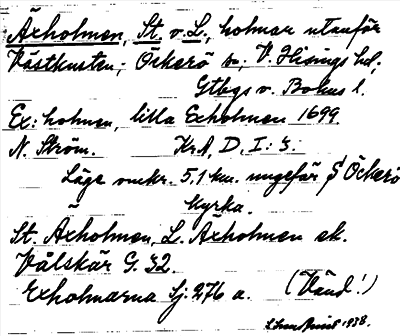 Äxholmen, St. o. L., holmar utanför
Västkusten; Öckerö sn, V. Hisings hd,
Gtbgs o. Bohus l.
Ex: holmen, lilla Exholmen 1699.
N. Ström. KrA, D, I: 3.
Läge omkr. 5,1 km. ungefär S Öckerö
kyrka.
St. Äxholmen, L. Äxholmen ek.
Vålskär G. 32.
Exholmarna Sj 276 a. (Vänd!)
1938.